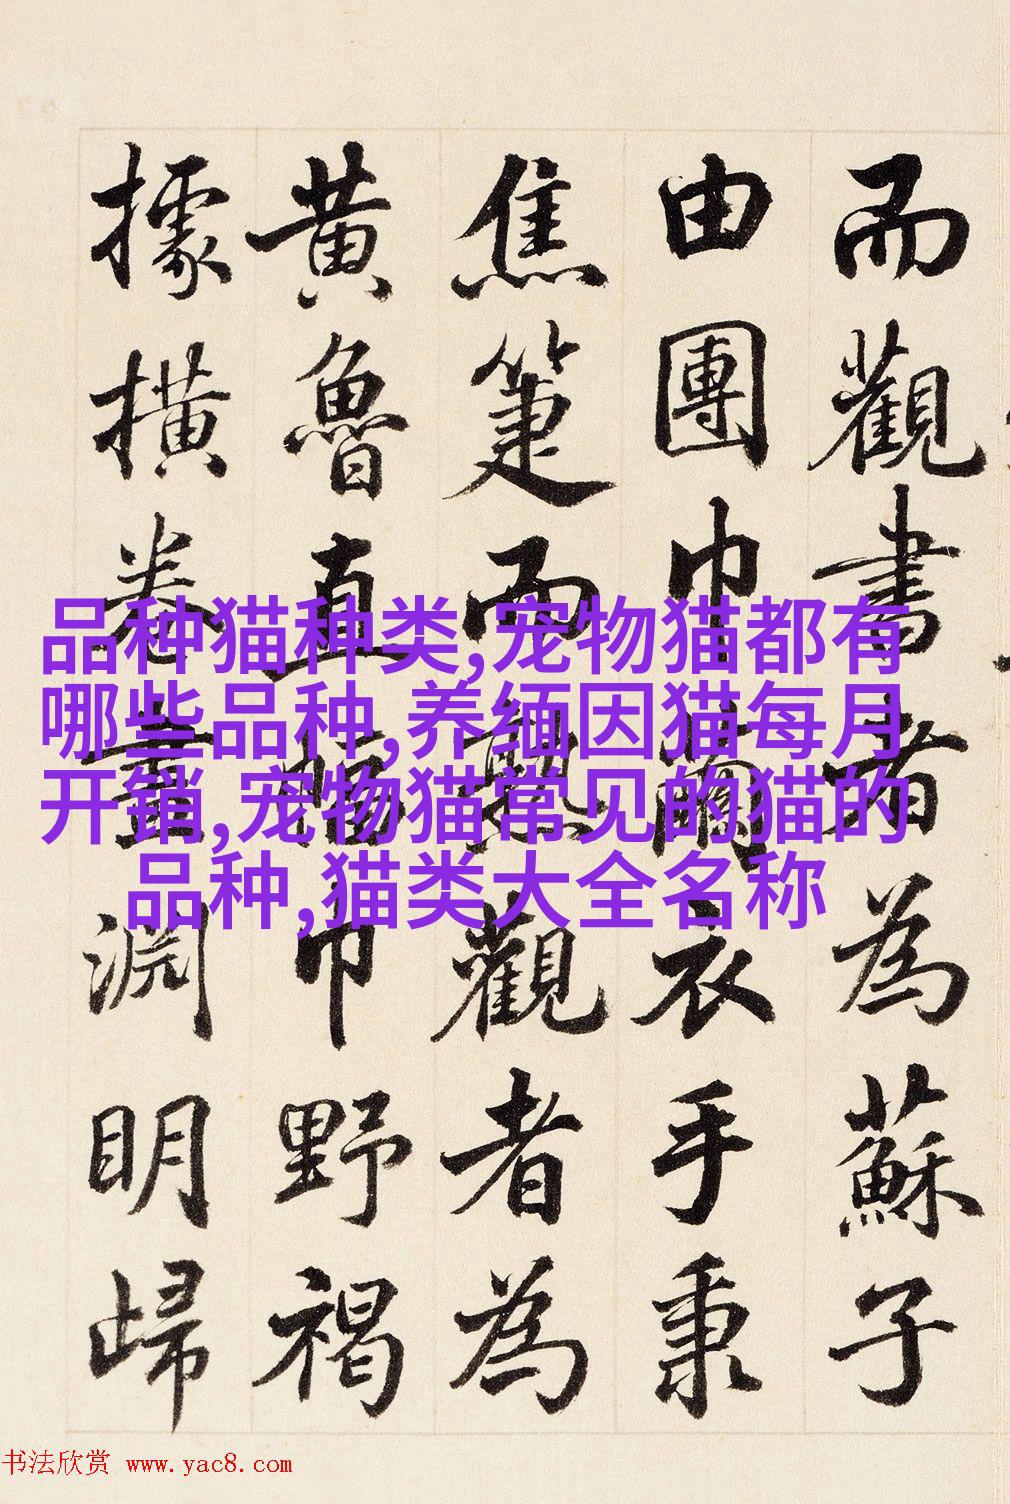 而觀書者為蘇子
由團巾繭衣手秉
焦箑而熟觀者為
黃魯直幅巾野褐
據橫卷畫淵明歸
品种猫种类,宠物猫都有
哪些品种,养缅因猫每月
开销,宠物猫常见的猫的
品种,猫类大全名称
书法欣赏 www.yac8.com